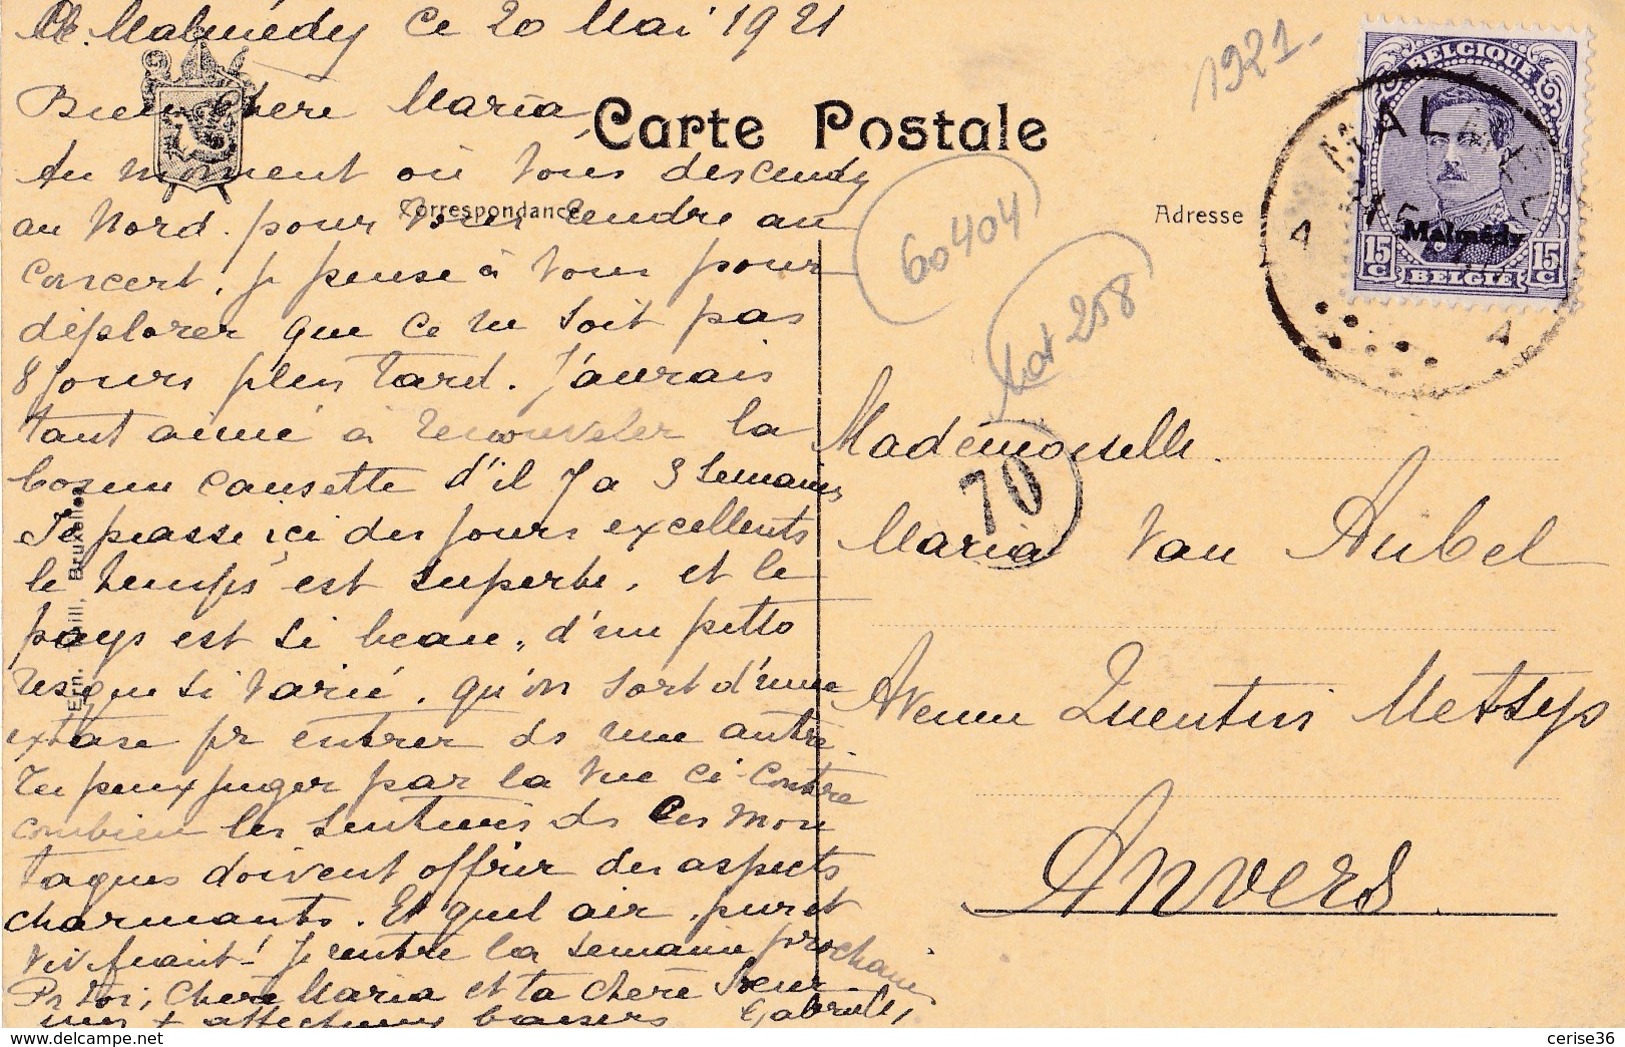 Malmédy ce 20 Mai 1921
1921-
Bien chère Maria,
Carte Postale
Au moment où vous descendez
au Nord pour vous rendre au
Correspondance
Adresse
concert, je pense à vous pour
déplorer que ce ne soit pas
8 jours plus tard. J'aurais
tant aimé à renouveler la
bonne causette d'il y a 3 semaines
Je passe ici des jours excellents
le temps est superbe, et le
pays est si beau, d'un pitto
resque si varié, qu'on sort d'une
extase pr entrer ds une autre.
Tu peux juger par la vue ci-contre
combien les sentiers ds ces mon
tagnes doivent offrir des aspects
charmants. Et quel air pur et
vivifiant! Je rentre la semaine prochaine
Pr toi, chère Maria et ta chère Soeur
mes + affectueux baisers Gabrielle
60404
Lot 258
70
BELGIQUE
Malmédy
15 C
BELGIË
15 C
MALMEDY
4
4
Mademoiselle
Maria Van Aubel
Avenue Quentin Metsys
Anvers
Ern. Thill, Bruxelles
cerise36